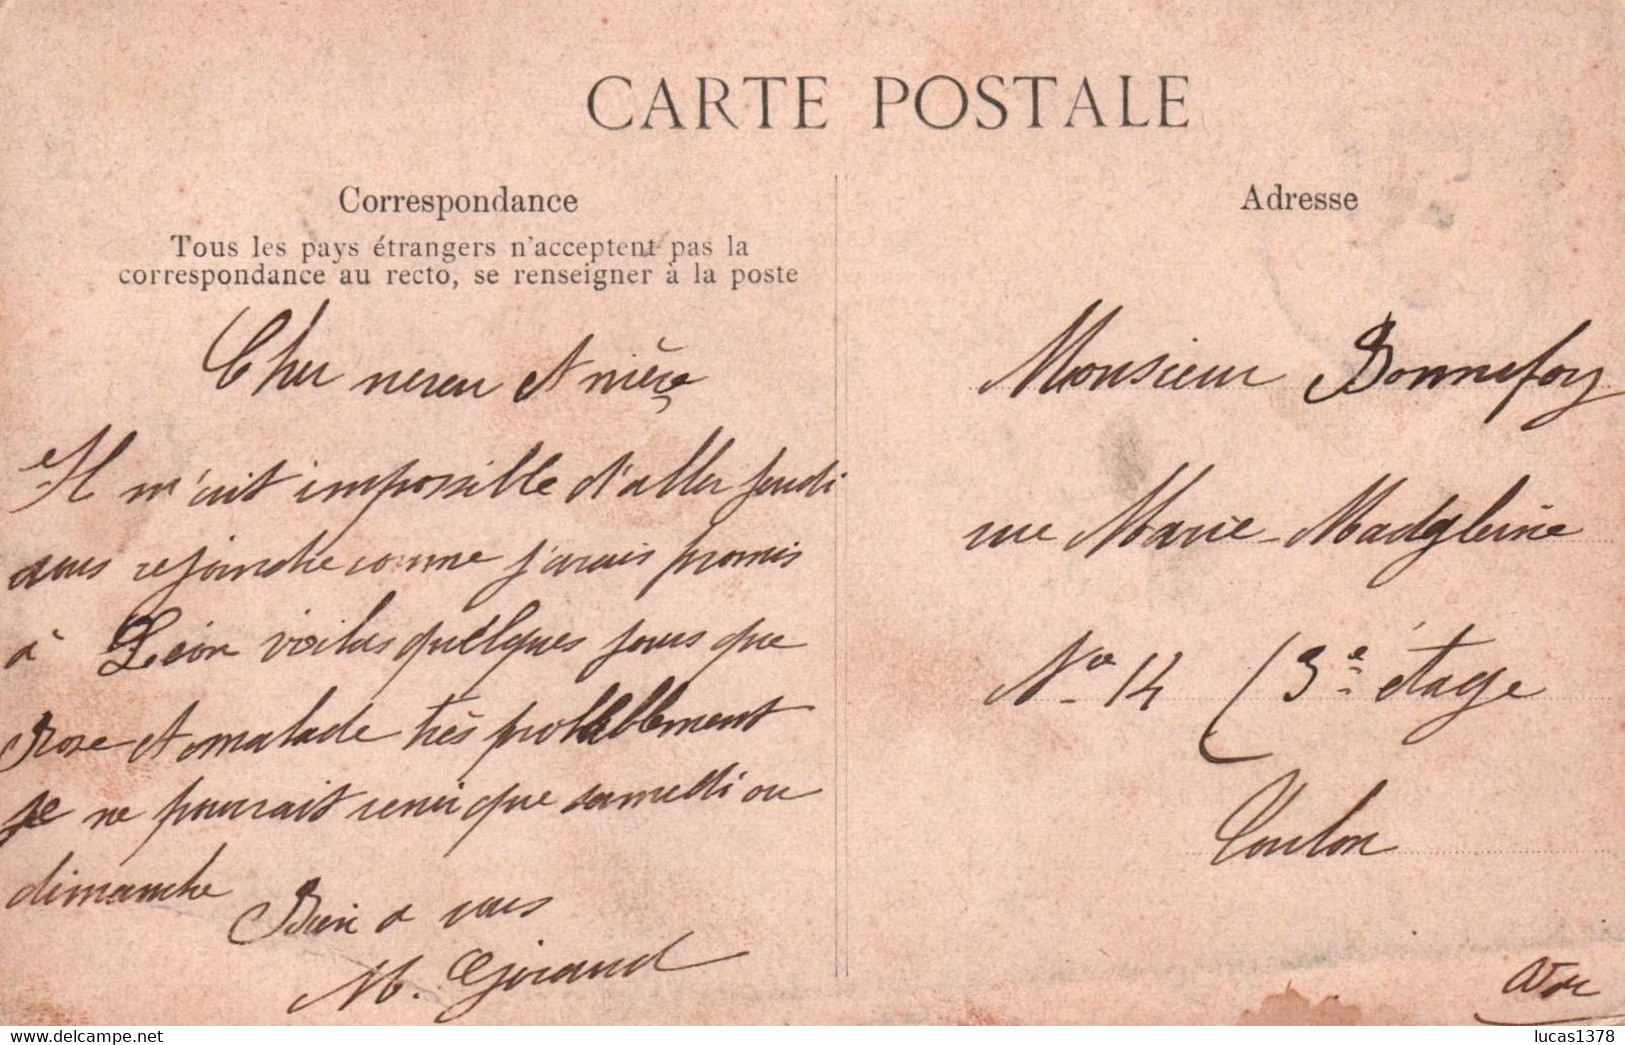 CARTE POSTALE
Correspondance
Tous les pays étrangers n'acceptent pas la
correspondance au recto, se renseigner à la poste
Cher neveu et nièce
Il m'est impossible d'aller jeudi
vous rejoindre comme j'avais promis
à Léon voilas quelques jours que
Rose et malade très probablement
je ne pourrait venir que samedi ou
dimanche
Bien a vous
M. Giraud
Adresse
Monsieur Bonnefoy
rue Marie-Madgleine
No 14 (3e étage
Toulon
Var
lucas1378